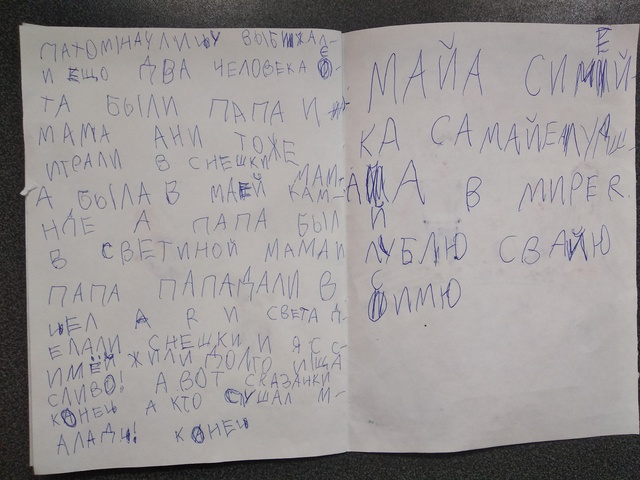 ПАТОМ НАУЛИЦУ ВЫБИЖАЛ-
И ЕЩО ДВА ЧЕЛОВЕКА Э-
ТА БЫЛИ ПАПА И
МАМА АНИ ТОЖЕ
ИГРАЛИ В СНЕШКИ МАМ-
А БЫЛА В МАЕЙ КАМ-
НДЕ А ПАПА БЫЛ
В СВЕТИНОЙ МАМА И
ПАПА ПАПАДАЛИ В
ЦЕЛ А Я И СВЕТА Д-
ЕЛАЛИ СНЕШКИ И Я С С-
ИМЁЙ ЖИЛИ ДОЛГО И ЩА
СЛИВО! А ВОТ СКАЗАНКИ
КОНЕЦ А КТО СУШАЛ М-
АЛАДЦ! КОНЕЦ
МАЙА СИМЕЙ
КА САМАЙЕ ЛУЧШ-
АЙА В МИРЕ Я
ЛУБЛЮ СВАЙЮ
СИМЮ